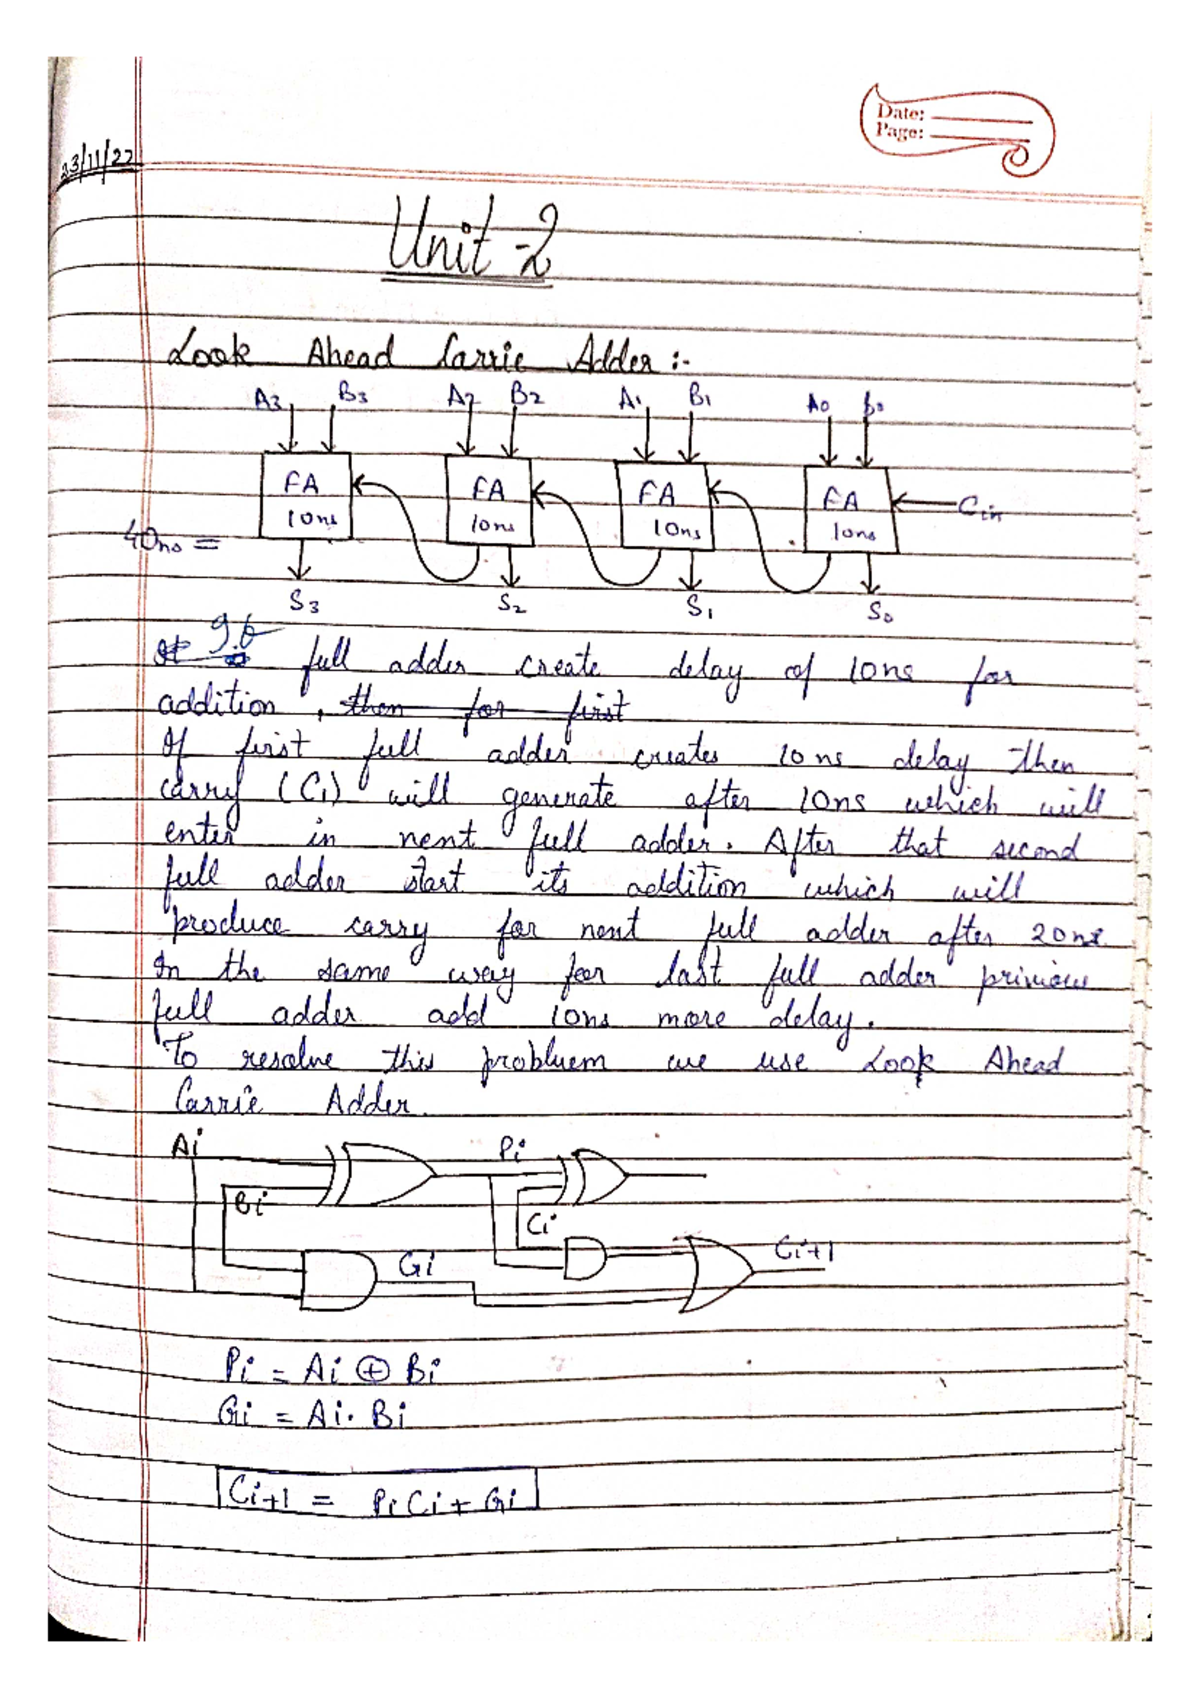 Date:
Page:
23/11/22
Unit-2
Look Ahead Carrie Adder :-
A3 B3 A2 B2 A1 B1 A0 B0
FA FA FA FA Cin
10ns 10ns 10ns 10ns
40ns =
S3 S2 S1 S0
If full adder create delay of 10ns for
addition, then for first
If first full adder creates 10ns delay then
carry (C1) will generate after 10ns which will
enter in next full adder. After that second
full adder start its addition which will
produce carry for next full adder after 20ns.
In the same way for last full adder privious
full adder add 10ns more delay.
To resolve this probluem we use Look Ahead
Carrie Adder.
Ai Pi
Bi Ci
Gi Ci+1
Pi = Ai ⊕ Bi
Gi = Ai. Bi
Ci+1 = PiCi + Gi